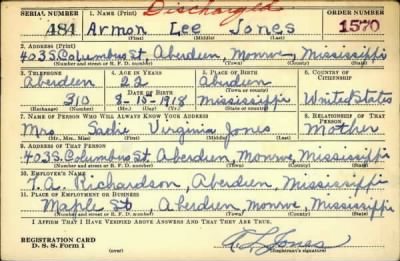 Discharged
SERIAL NUMBER 1. Name (Print) ORDER NUMBER
484 Armon Lee Jones 1570
(First) (Middle) (Last)
2. Address (Print)
403 S. Columbus St. Aberdeen, Monroe, Mississippi
(Number and street or R. F. D. number) (Town) (County) (State)
3. Telephone 4. Age in Years 5. Place of Birth 6. Country of Citizenship
Aberdeen 22 Aberdeen
Date of Birth (Town or county)
310 8-15-1918 Mississippi United States
(Exchange) (Number) (Mo.) (Day) (Yr.) (State or country)
7. Name of Person Who Will Always Know Your Address 8. Relationship of That Person
Mrs. Sadie Virginia Jones Mother
(Mr., Mrs., Miss) (First) (Middle) (Last)
9. Address of That Person
403 S. Columbus St. Aberdeen, Monroe, Mississippi
(Number and street or R. F. D. number) (Town) (County) (State)
10. Employer's Name
T.A. Richardson, Aberdeen, Mississippi
11. Place of Employment or Business
Maple St Aberdeen, Monroe, Mississippi
(Number and street or R. F. D. number) (Town) (County) (State)
I Affirm That I Have Verified Above Answers and That They Are True.
REGISTRATION CARD
D. S. S. Form 1 (over) (Registrant's signature)
A L Jones